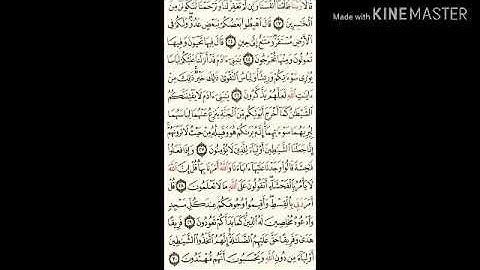 Made with KINEMASTER
قَالَا رَبَّنَا ظَلَمْنَا أَنفُسَنَا وَإِن لَّمْ تَغْفِرْ لَنَا وَتَرْحَمْنَا لَنَكُونَنَّ مِنَ
ٱلْخَٰسِرِينَ ٢٣ قَالَ ٱهْبِطُوا۟ بَعْضُكُمْ لِبَعْضٍ عَدُوٌّ وَلَكُمْ فِى
ٱلْأَرْضِ مُسْتَقَرٌّ وَمَتَٰعٌ إِلَىٰ حِينٍ ٢٤ قَالَ فِيهَا تَحْيَوْنَ وَفِيهَا
تَمُوتُونَ وَمِنْهَا تُخْرَجُونَ ٢٥ يَٰبَنِىٓ ءَادَمَ قَدْ أَنزَلْنَا عَلَيْكُمْ لِبَاسًا
يُوَٰرِى سَوْءَٰتِكُمْ وَرِيشًا وَلِبَاسُ ٱلتَّقْوَىٰ ذَٰلِكَ خَيْرٌ ذَٰلِكَ مِنْ
ءَايَٰتِ ٱللَّهِ لَعَلَّهُمْ يَذَّكَّرُونَ ٢٦ يَٰبَنِىٓ ءَادَمَ لَا يَفْتِنَنَّكُمُ
ٱلشَّيْطَٰنُ كَمَآ أَخْرَجَ أَبَوَيْكُم مِّنَ ٱلْجَنَّةِ يَنزِعُ عَنْهُمَا لِبَاسَهُمَا
لِيُرِيَهُمَا سَوْءَٰتِهِمَآ إِنَّهُۥ يَرَىٰكُمْ هُوَ وَقَبِيلُهُۥ مِنْ حَيْثُ لَا تَرَوْنَهُمْ
إِنَّا جَعَلْنَا ٱلشَّيَٰطِينَ أَوْلِيَآءَ لِلَّذِينَ لَا يُؤْمِنُونَ ٢٧ وَإِذَا فَعَلُوا۟
فَٰحِشَةً قَالُوا۟ وَجَدْنَا عَلَيْهَآ ءَابَآءَنَا وَٱللَّهُ أَمَرَنَا بِهَا قُلْ إِنَّ ٱللَّهَ
لَا يَأْمُرُ بِٱلْفَحْشَآءِ أَتَقُولُونَ عَلَى ٱللَّهِ مَا لَا تَعْلَمُونَ ٢٨ قُلْ
أَمَرَ رَبِّى بِٱلْقِسْطِ وَأَقِيمُوا۟ وُجُوهَكُمْ عِندَ كُلِّ مَسْجِدٍ
وَٱدْعُوهُ مُخْلِصِينَ لَهُ ٱلدِّينَ كَمَا بَدَأَكُمْ تَعُودُونَ ٢٩ فَرِيقًا
هَدَىٰ وَفَرِيقًا حَقَّ عَلَيْهِمُ ٱلضَّلَٰلَةُ إِنَّهُمُ ٱتَّخَذُوا۟ ٱلشَّيَٰطِينَ
أَوْلِيَآءَ مِن دُونِ ٱللَّهِ وَيَحْسَبُونَ أَنَّهُم مُّهْتَدُونَ ٣٠